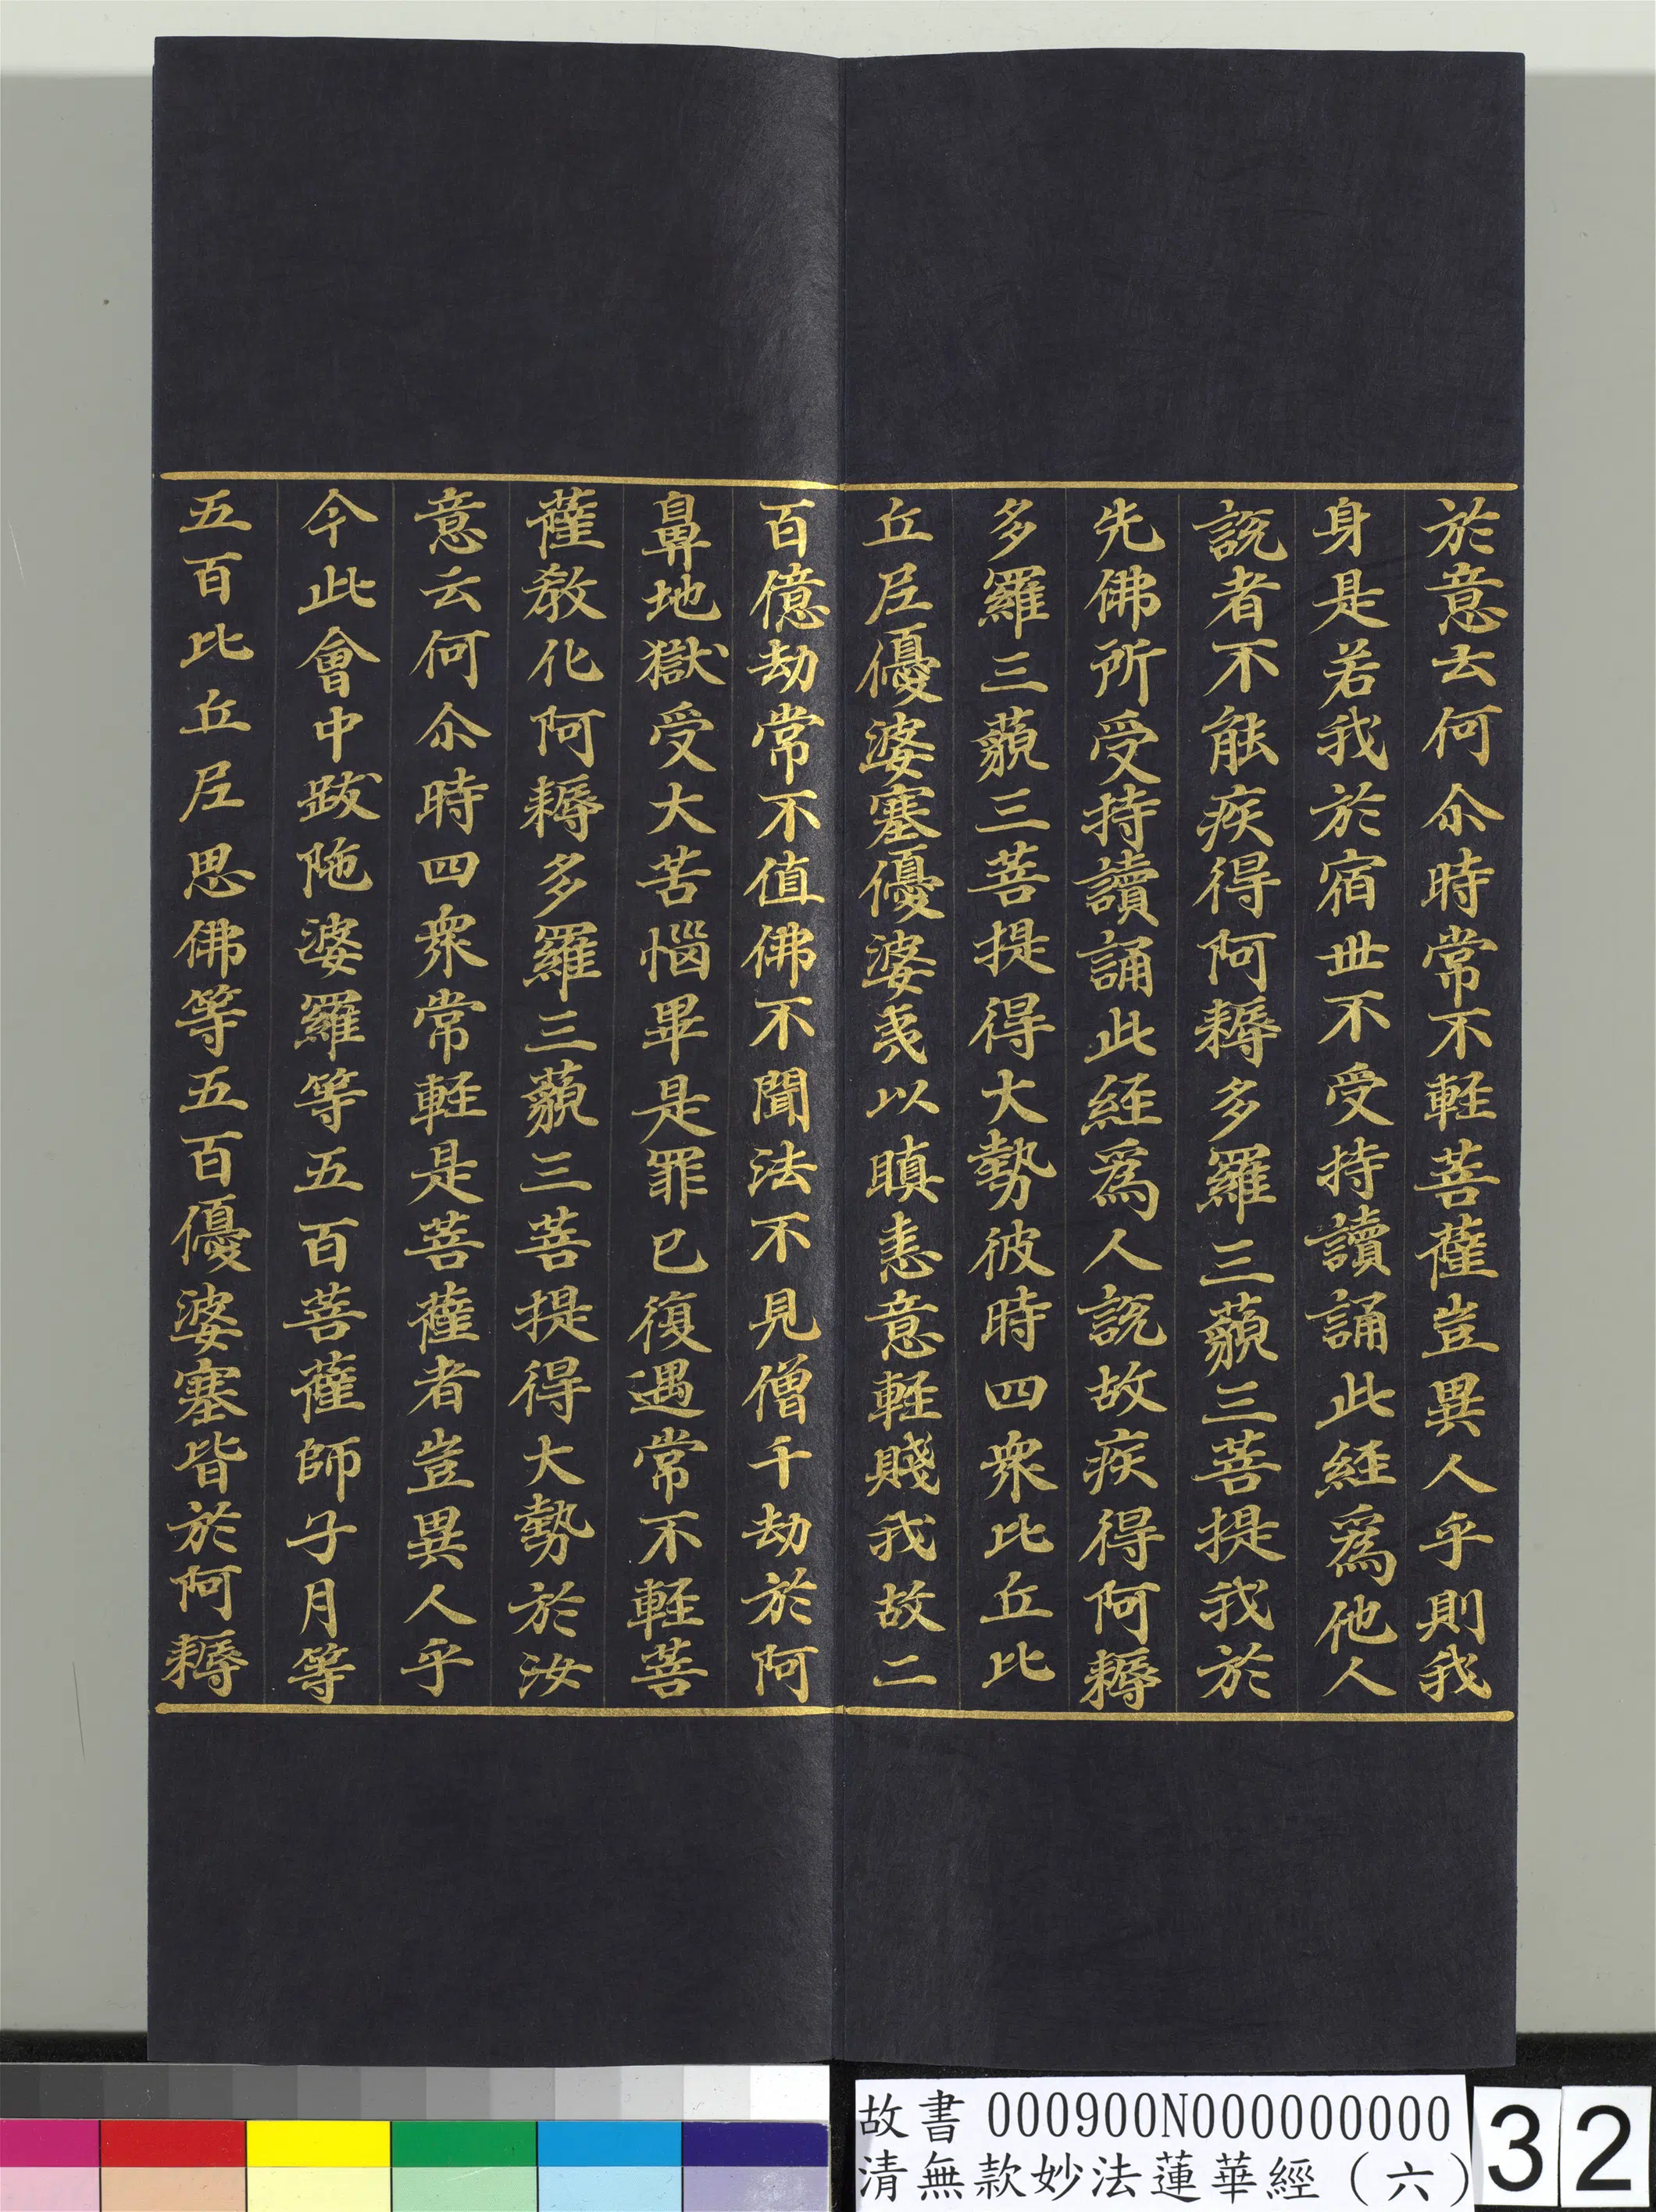 於意云何尒時常不輕菩薩豈異人乎則我
身是若我於宿世不受持讀誦此經爲他人
說者不能疾得阿耨多羅三藐三菩提我於
先佛所受持讀誦此經爲人說故疾得阿耨
多羅三藐三菩提得大勢彼時四衆比丘比
丘尼優婆塞優婆夷以瞋恚意輕賤我故二
百億劫常不值佛不聞法不見僧千劫於阿
鼻地獄受大苦惱畢是罪已復遇常不輕菩
薩教化阿耨多羅三藐三菩提得大勢於汝
意云何尒時四衆常輕是菩薩者豈異人乎
今此會中跋陁婆羅等五百菩薩師子月等
五百比丘尼思佛等五百優婆塞皆於阿耨
故書 000900N000000000
清無款妙法蓮華經（六）
32